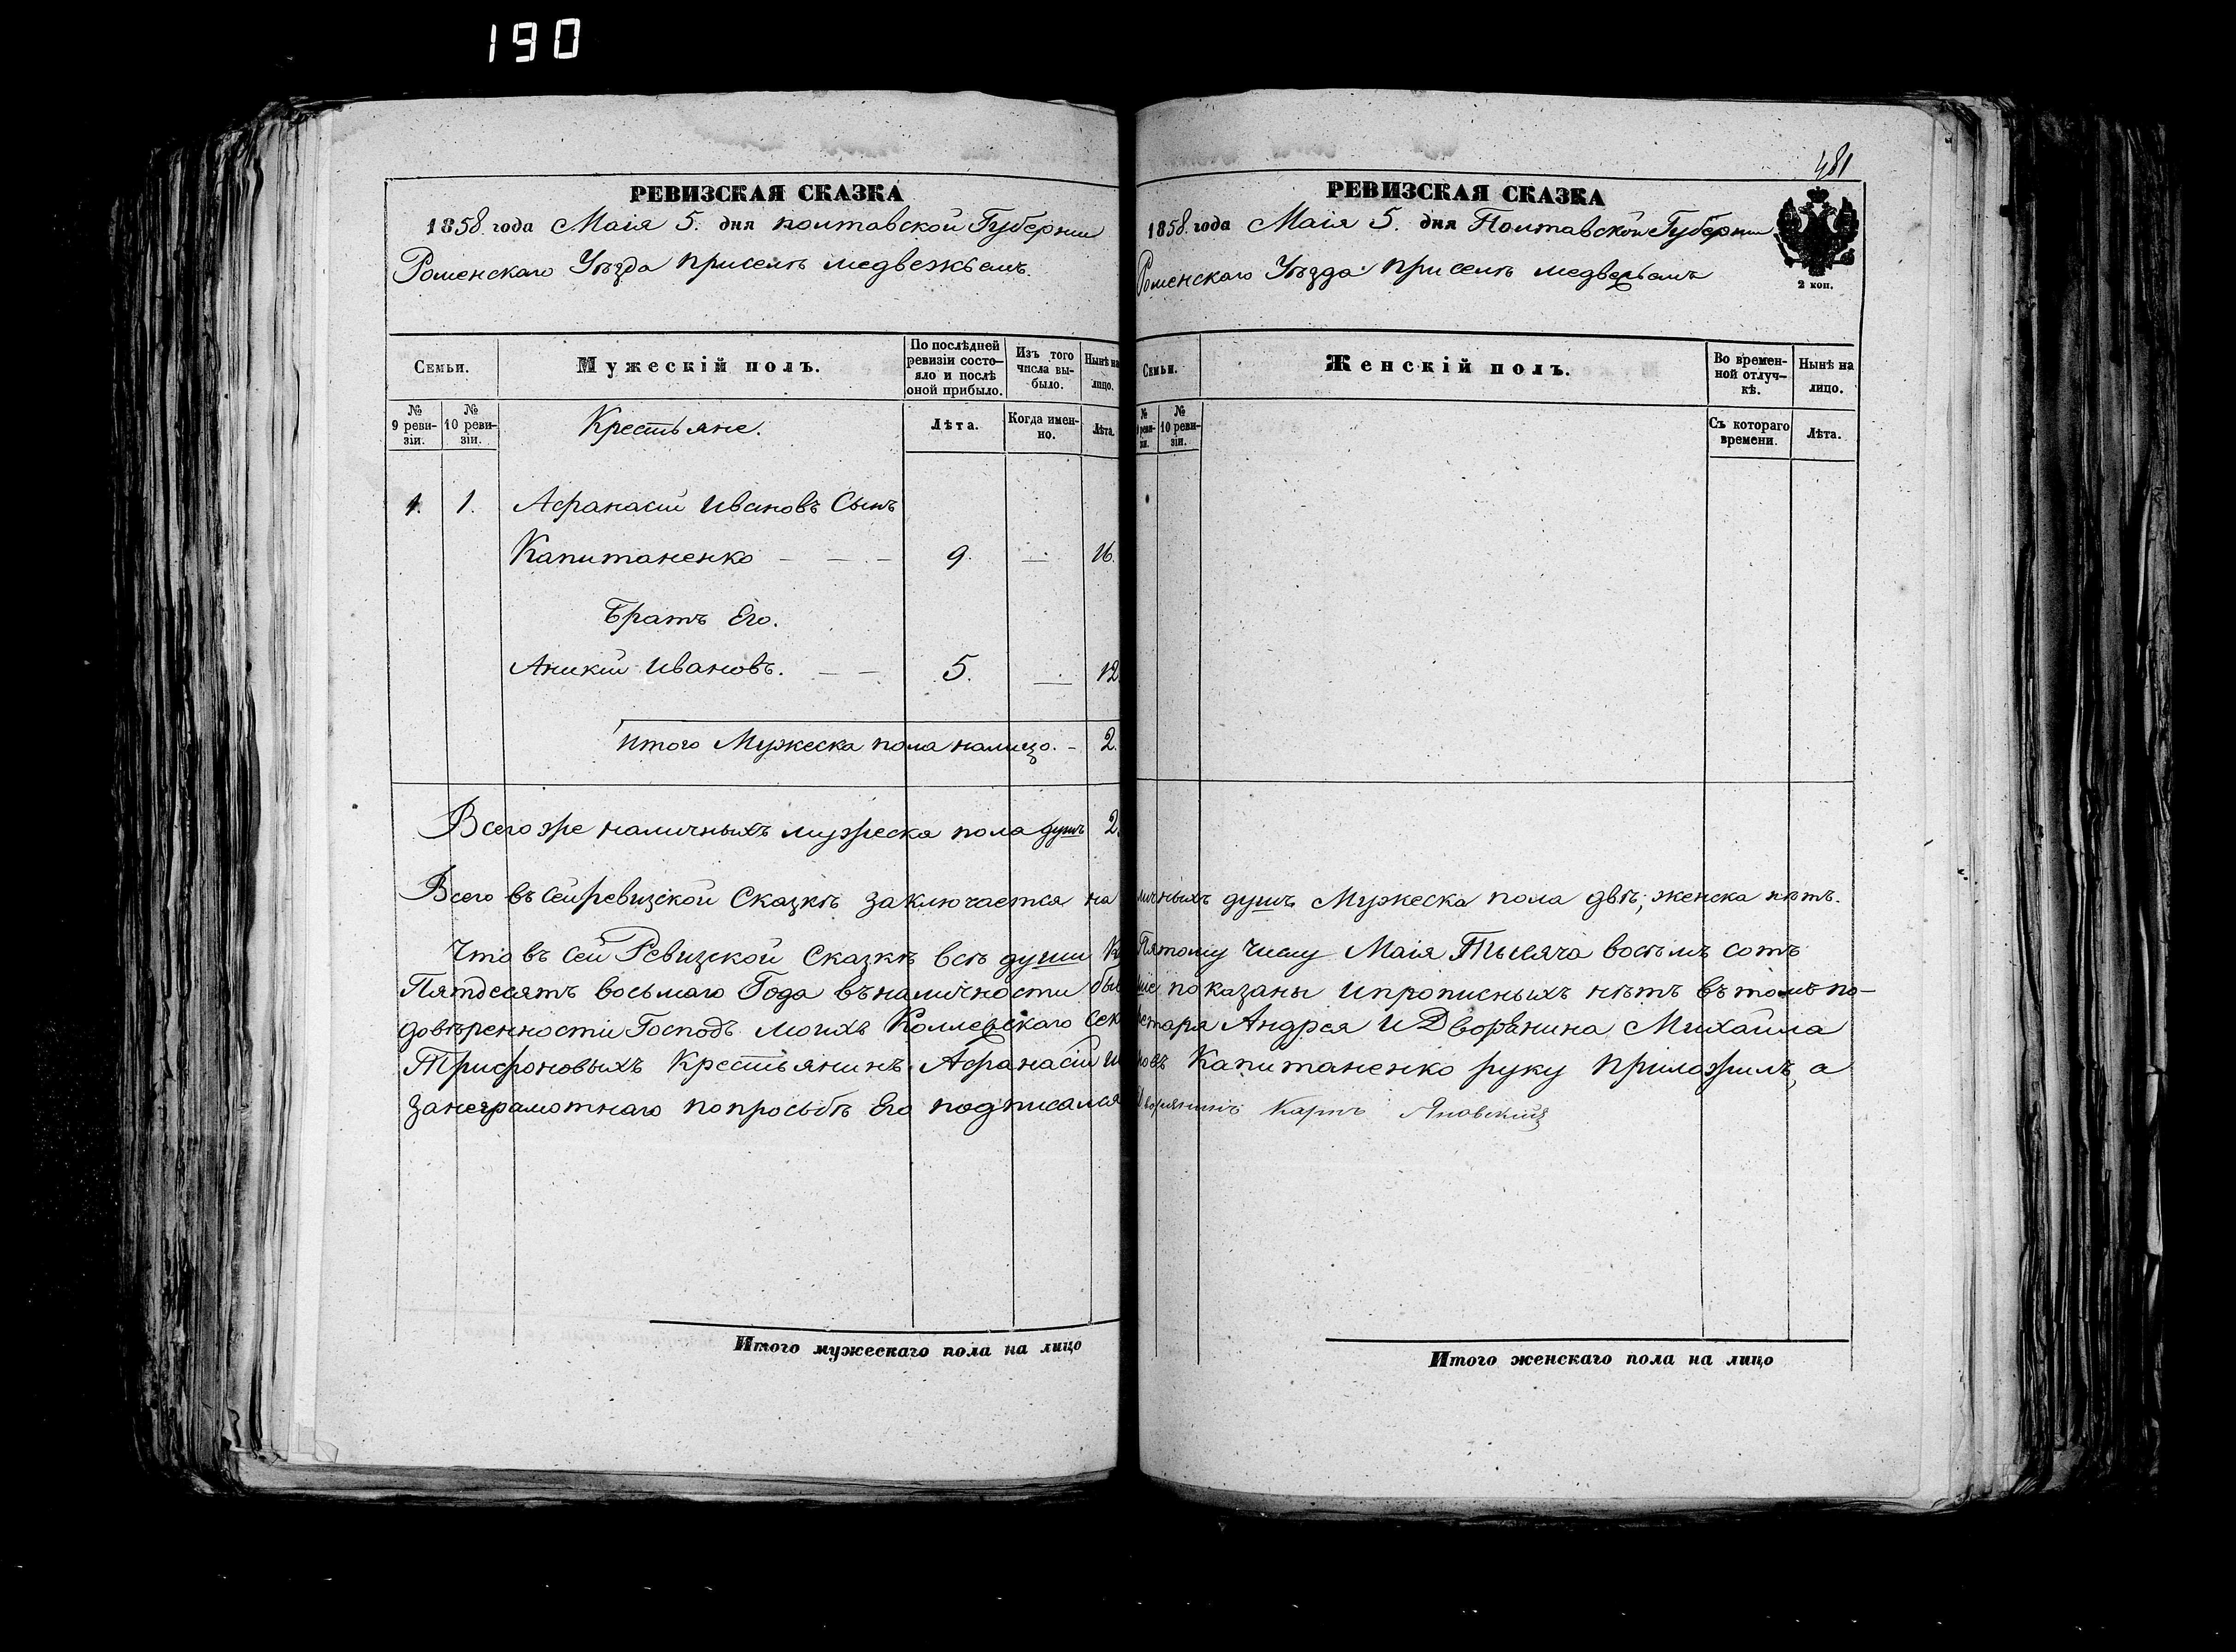 190
РЕВИЗСКАЯ СКАЗКА
1858 года Маія 5. дня полтавской Губерніи
Роменскаго Уѣзда присели медвежьемъ.
Семьи.
Мужескій полъ.
По послѣдней ревизіи состояло и послѣ оной прибыло.
Изъ того числа выбыло.
Нынѣ на лицо.
№ 9 ревизіи.
№ 10 ревизіи.
Крестьяне.
Лѣта.
Когда именно.
Лѣта.
1. 1. Афанасій Ивановъ Сынъ
Капитаненко — — — 9. — 16.
Братъ Его.
Аникій Ивановъ. — — 5. — 12
Итого Мужеска пола налицо. - 2.
Всего же наличныхъ мужеска пола душъ 2.
Всего въ сей ревизской Сказкѣ заключается на
Что въ сей Ревизской Сказкѣ всѣ души К
Пятдесятъ восьмаго Года въ наличности бы
довѣренности Господъ моихъ Коллежскаго Сек
Трифоновыхъ Крестьянинъ Афанасій И
за неграмотнаго по просьбѣ Его подписался
Итого мужескаго пола на лицо
481
РЕВИЗСКАЯ СКАЗКА
1858 года Маія 5. дня Полтавской Губерніи
Роменскаго Уѣзда при селѣ медвежьемъ
2 коп.
Семьи.
Женскій полъ.
Во временной отлучкѣ.
Нынѣ на лицо.
№ 9 ревизіи.
№ 10 ревизіи.
Съ котораго времени.
Лѣта.
личныхъ душъ Мужеска пола двѣ; женска нѣтъ.
Пятому числу Маія Тысяча восемь сотъ
шіе показаны и прописныхъ нѣтъ въ томъ по-
ретаря Андрея и Дворянина Михаила
новъ Капитаненко руку приложилъ, а
Дворянинъ Карпъ Яновскій
Итого женскаго пола на лицо